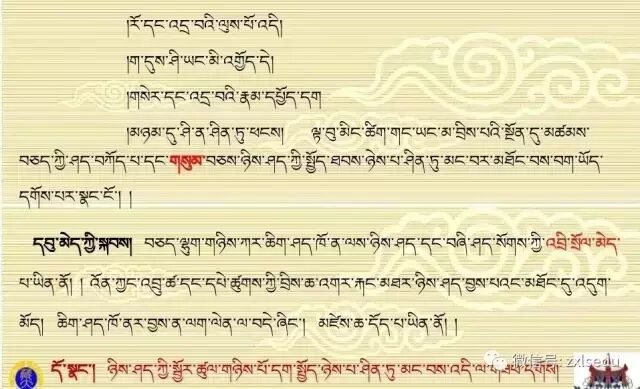 །རོ་དང་འདྲ་བའི་ལུས་པོ་འདི།
།ག་དུས་ཤི་ཡང་མི་འགྱོད་དེ།
།གསེར་དང་འདྲ་བའི་རྣམ་དཔྱོད་དག
།མཉམ་དུ་ཤི་ན་ཤིན་ཏུ་ཕངས། ལྟ་བུ་མིང་ཚིག་གང་ཡང་མ་བྲིས་པའི་སྔོན་དུ་མཚམས་
བཅད་ཀྱི་ཤད་བཀོད་པ་དང་གསུམ་བཅས་ཉིས་ཤད་ཀྱི་སྤྱོད་ཐབས་ཉེས་པ་ཤིན་ཏུ་མང་བར་མཐོང་བས་བག་ཡོད་
དགོས་པར་སྣང་ངོ་། །
དབུ་མེད་ཀྱི་སྐབས། བཅད་ལྷུག་གཉིས་ཀར་ཆིག་ཤད་ཁོ་ན་ལས་ཉིས་ཤད་དང་བཞི་ཤད་སོགས་ཀྱི་འབྲི་སྲོལ་མེད་
པ་ཡིན་ནོ། །འོན་ཀྱང་འབྲུ་ཚ་དང་དཔེ་ཚུགས་ཀྱི་བྲིས་ཆ་འགར་རྐང་མཐར་ཉིས་ཤད་བྱས་པའང་མཐོང་དུ་འདུག་
མོད། ཆིག་ཤད་ཁོ་ནར་བྱས་ན་ལག་ལེན་ལ་བདེ་ཞིང་། མཛེས་ཆ་དོད་པ་ཡིན་ནོ། །
དོ་སྣང་། ཉིས་ཤད་ཀྱི་སྦྱོར་ཚུལ་གཉིས་པོ་དག་སྤྱོད་ཉེས་པ་ཤིན་ཏུ་མང་བས་འདི་ལ་
微信号: zxlsedu